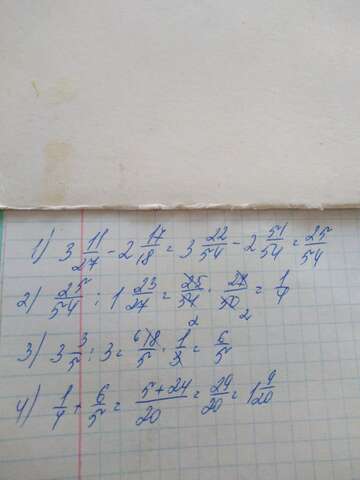 1) 3 11/27 - 2 17/18 = 3 22/54 - 2 51/54 = 25/54
2) 25/54 : 1 23/27 = 25/54 · 27/50 = 1/4
2 2
3) 3 3/5 : 3 = 18/5 · 1/3 = 6/5
4) 1/4 + 6/5 = 5+24/20 = 29/20 = 1 9/20